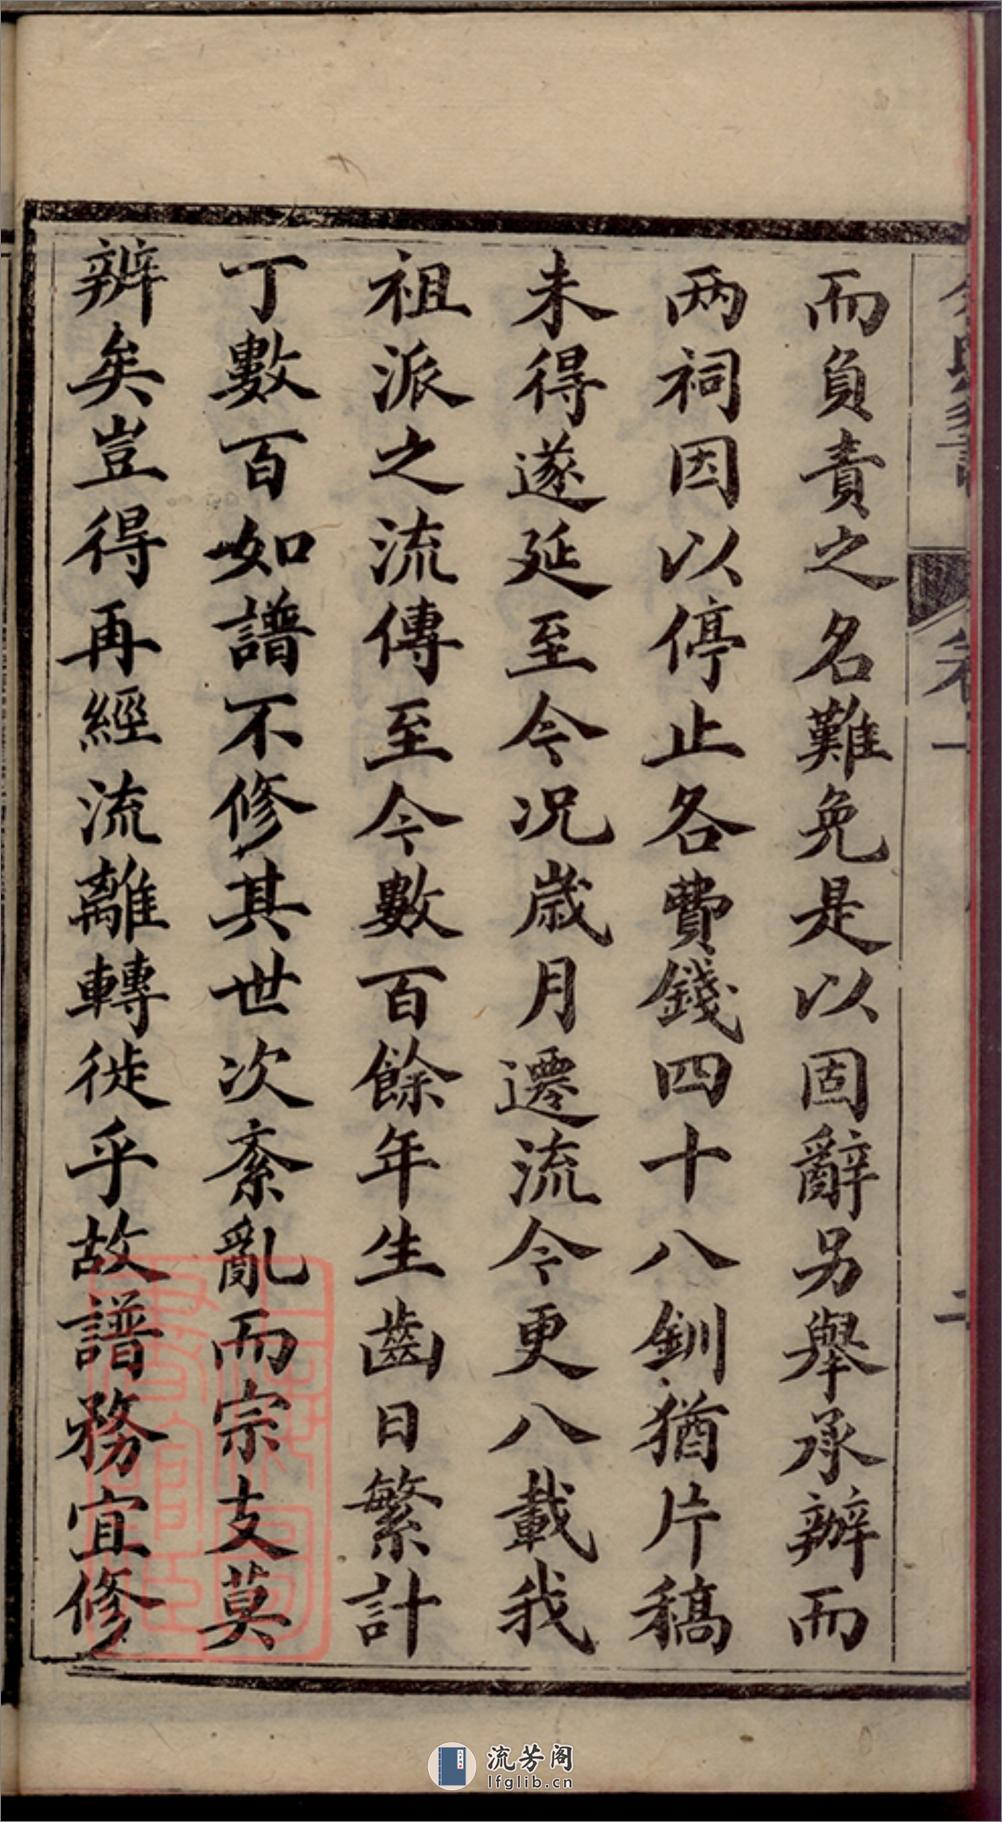 而負責之名難免是以固辭另舉承辦而
两祠因以停止各費錢四十八釧猶片稿
未得遂延至今况歲月遷流今更八載我
祖派之流傳至今數百餘年生齒日繁計
丁數百如譜不修其世次紊亂而宗支莫
辨矣豈得再經流離轉徙乎故譜務宜修
流芳阁
lfglib.cn